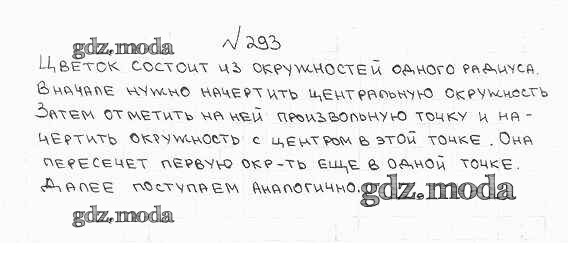 №293
gdz.moda
Цветок состоит из окружностей одного радиуса.
Вначале нужно начертить центральную окружность
Затем отметить на ней произвольную точку и на-
чертить окружность с центром в этой точке. Она
пересечет первую окр-ть еще в одной точке.
Далее поступаем аналогично.
gdz.moda
gdz.moda